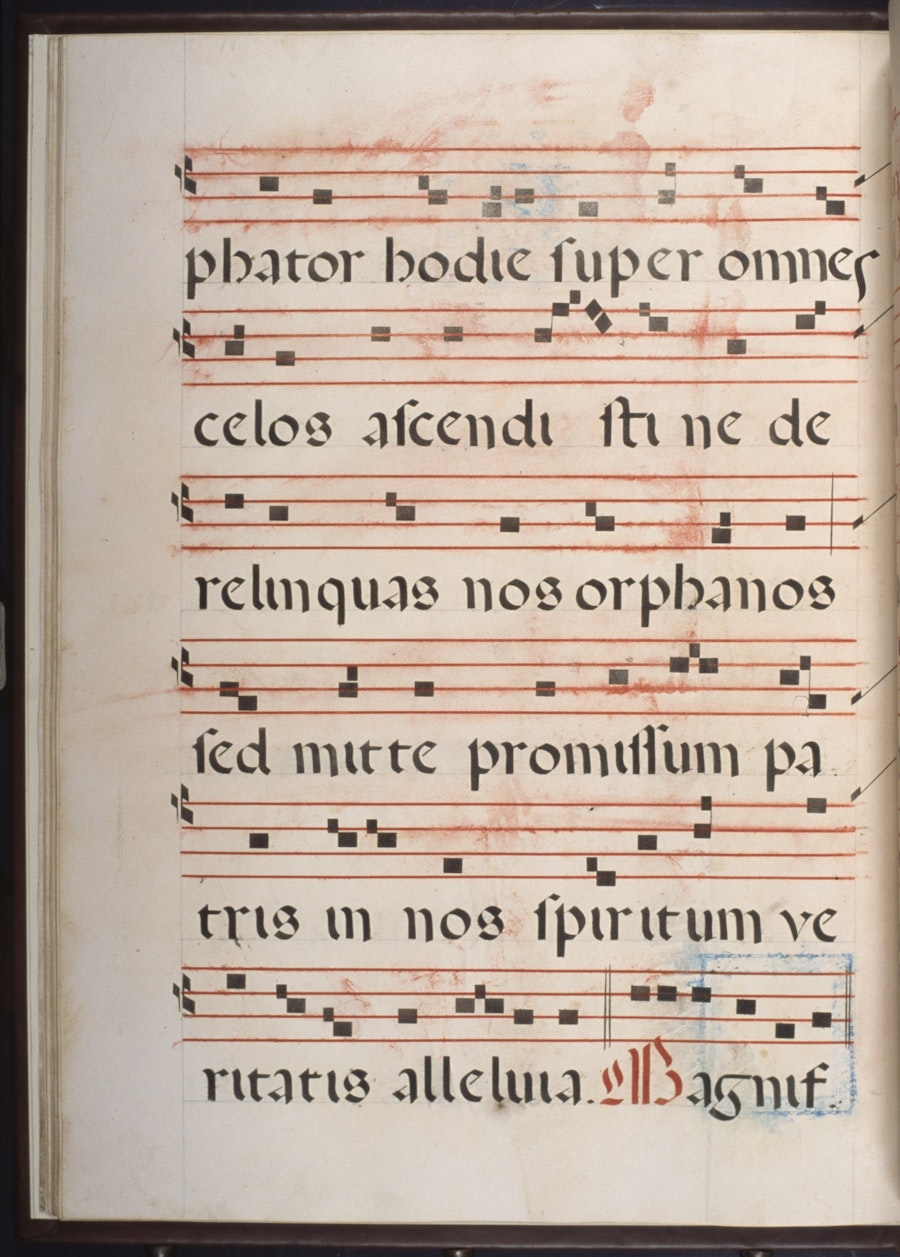 phator hodie ſuper omnes
celos aſcendi ſti ne de
relinquas nos orphanos
ſed mitte promiſſum pa
tris in nos ſpiritum ve
ritatis alleluia. Magnif.